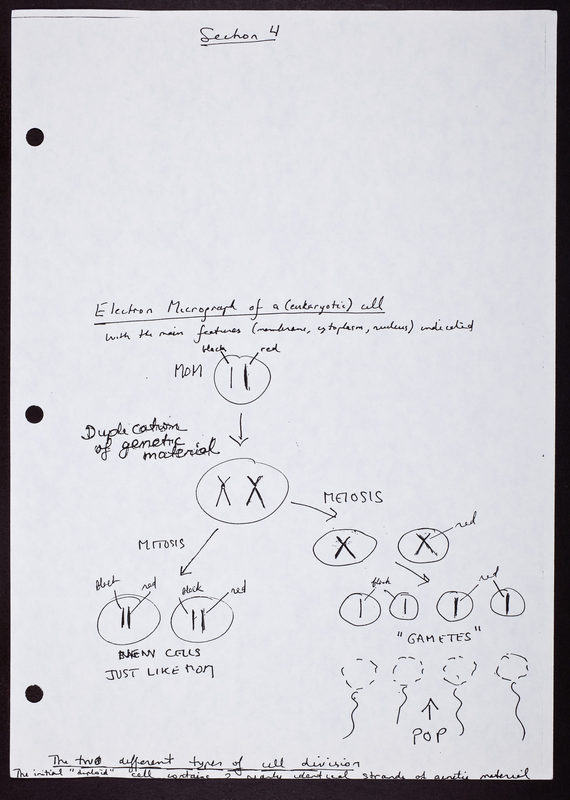 Section 4
Electron Micrograph of a (eukaryotic) cell
with the main features (membrane, cytoplasm, nucleus) indicated
black red
MOM
Duplication
of genetic
material
MEIOSIS
red
MITOSIS
black red black red
black red
"GAMETES"
NEW CELLS
JUST LIKE MOM
POP
The two different types of cell division
The initial "diploid" cell contains 2 nearly identical strands of genetic material